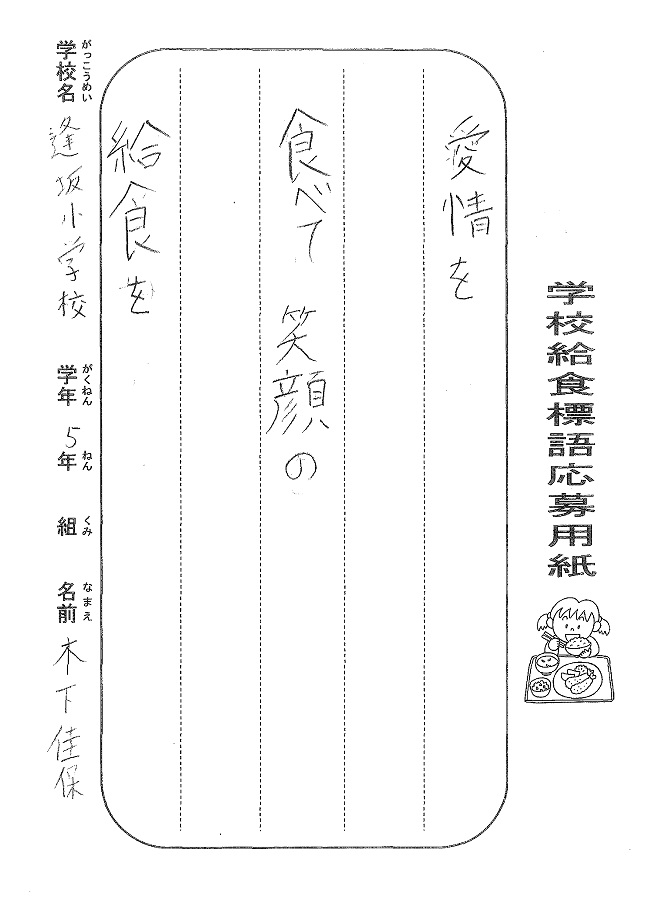 学校給食標語応募用紙
愛情を
食べて 笑顔の
給食を
学校名 逢坂小学校 学年 5年 組 名前 木下佳保
がっこうめい がくねん ねん くみ なまえ